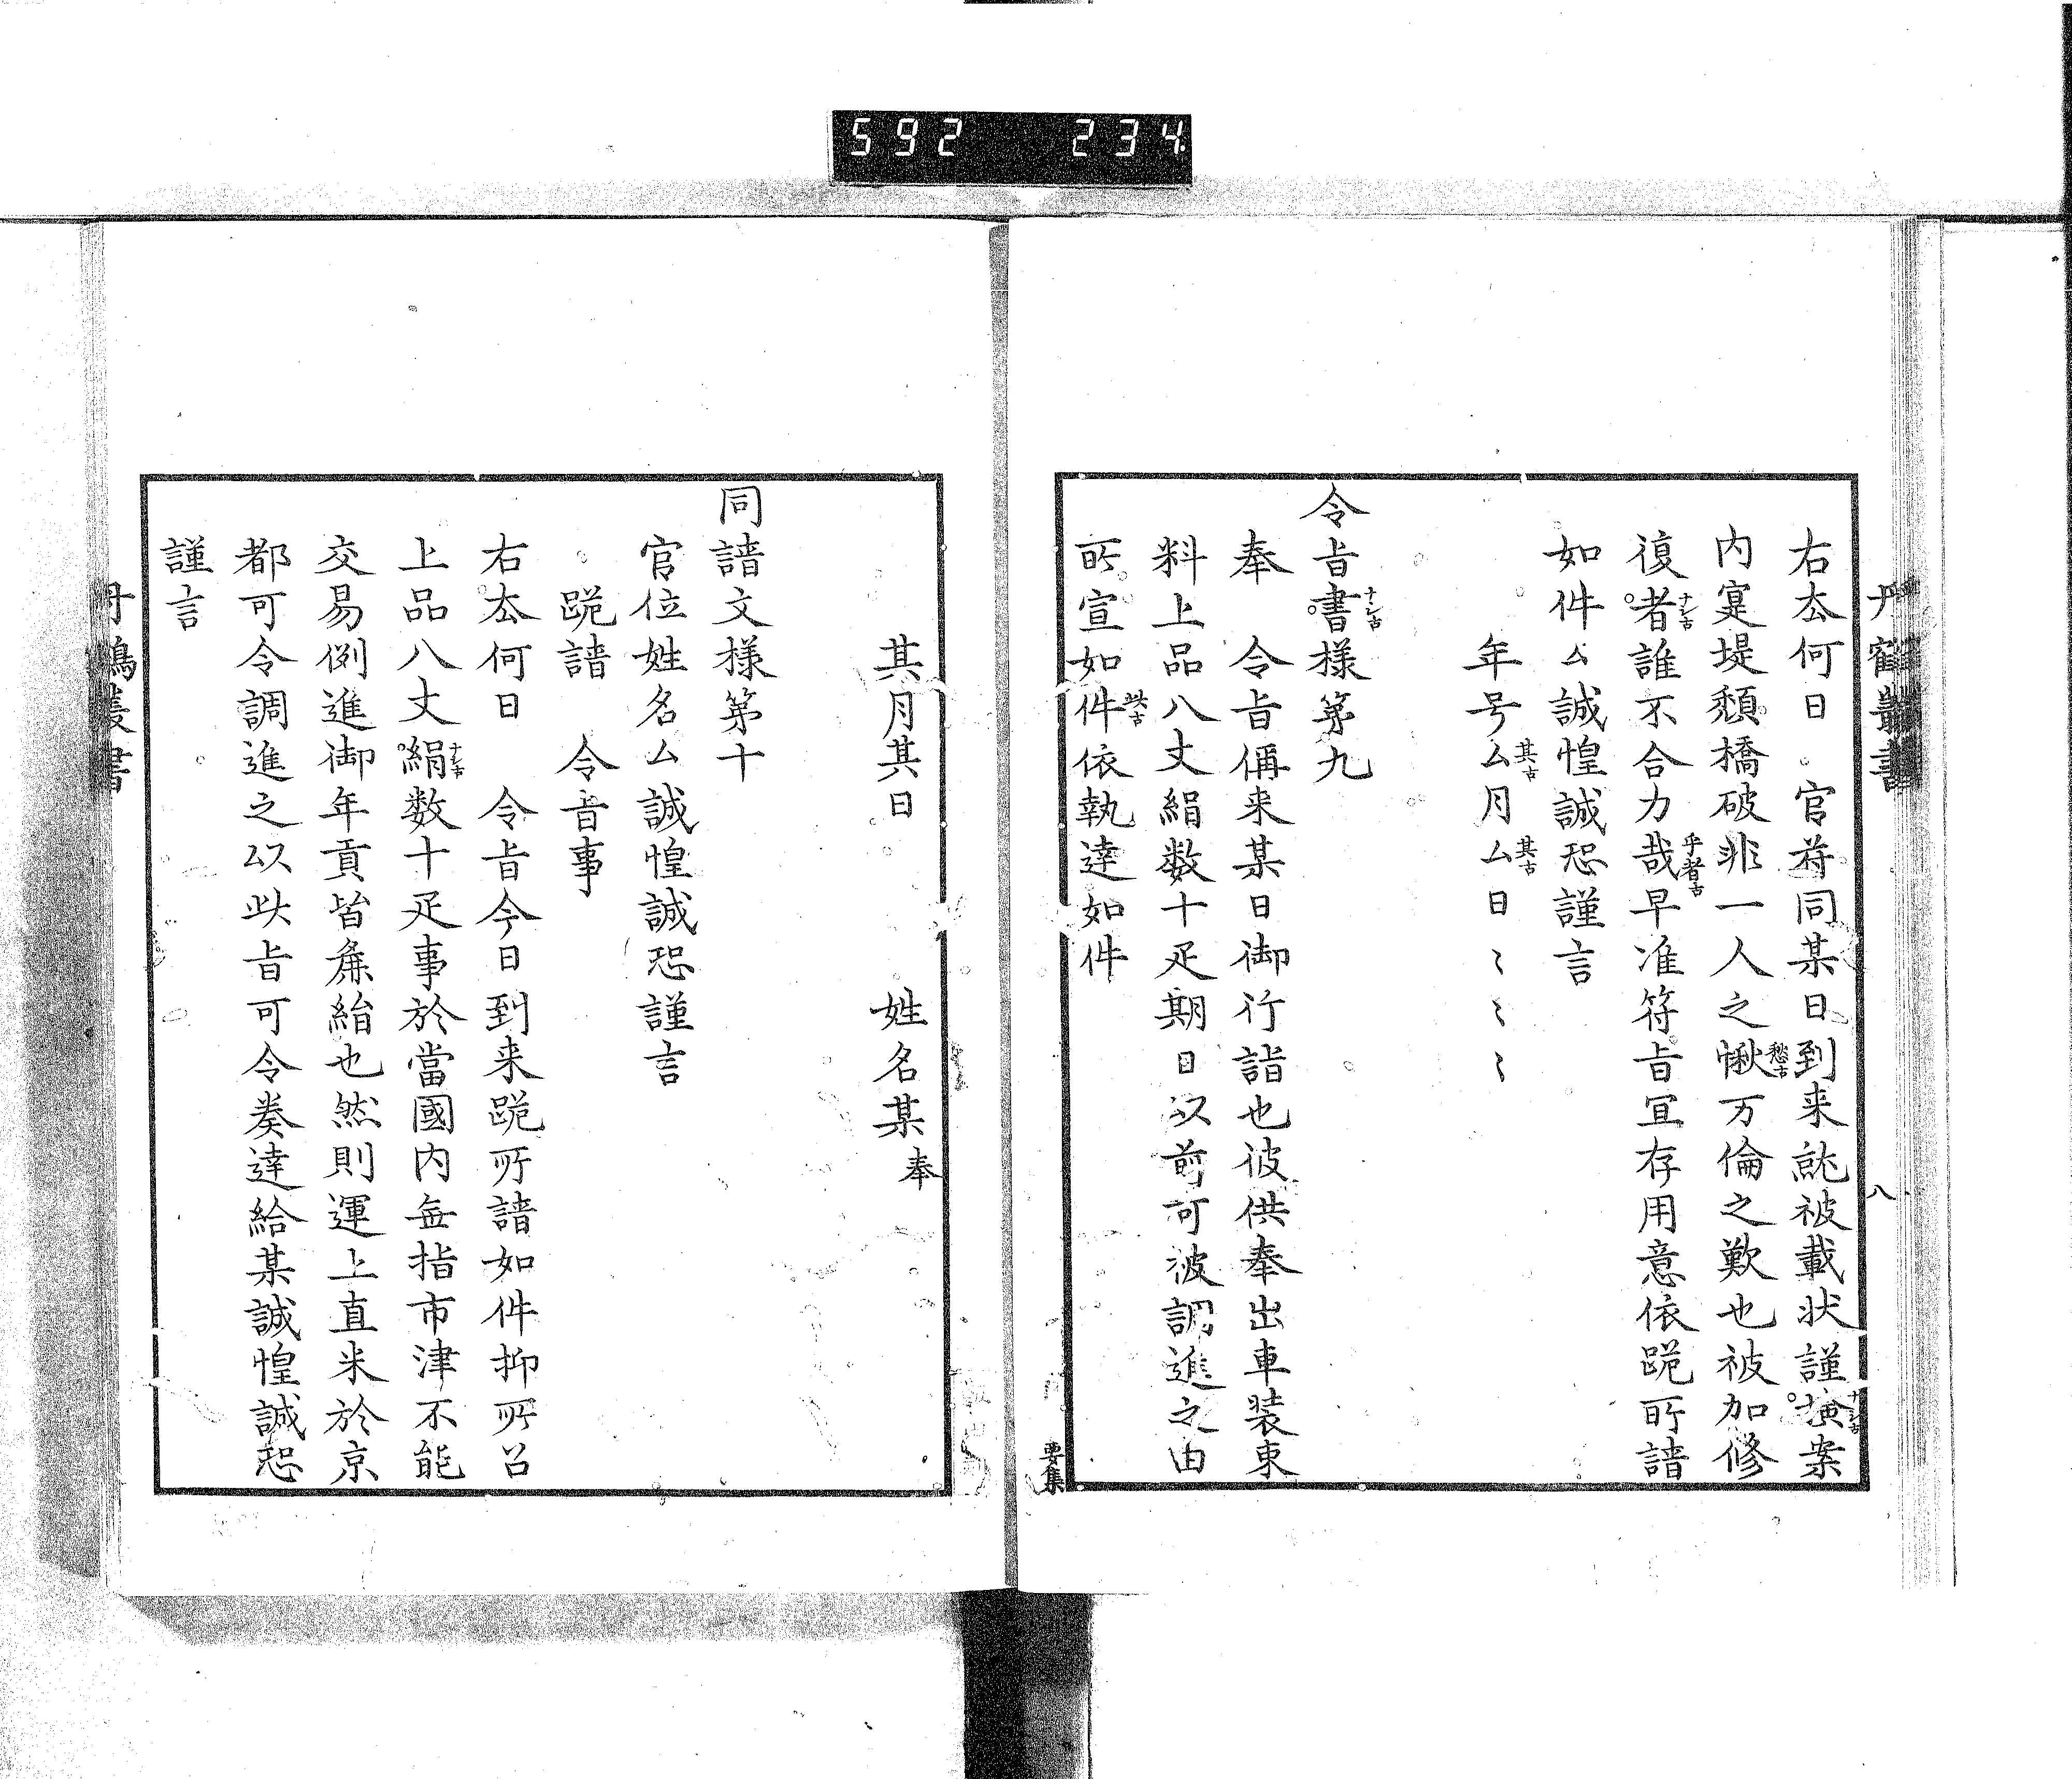 592 234
丹鶴叢書
八
右去何日 官符同某日到来就被載状謹撿案
ナシ古
内寔堤頽橋破非一人之愀万倫之歎也被加修
愁古
復者誰不合力哉早准符旨宜存用意依跪所請
ナシ古
乎者古
如件厶誠惶誠恐謹言
年号厶月厶日〻〻〻
其古
其古
令旨書様第九
ナシ古
奉 令旨偁来某日御行諧也彼供奉出車装束
料上品八丈絹数十疋期日以前可被調進之由
所宣如件依執達如件
状古
要集
其月其日 姓名某奉
同請文様第十
官位姓名厶誠惶誠恐謹言
跪請 令旨事
右去何日 令旨今日到来跪所請如件抑所召
上品八丈絹数十疋事於當國内無指市津不能
ナシ古
交易例進御年貢皆麁紿也然則運上直米於京
都可令調進之以此旨可令奏達給某誠惶誠恐
謹言
丹鶴叢書